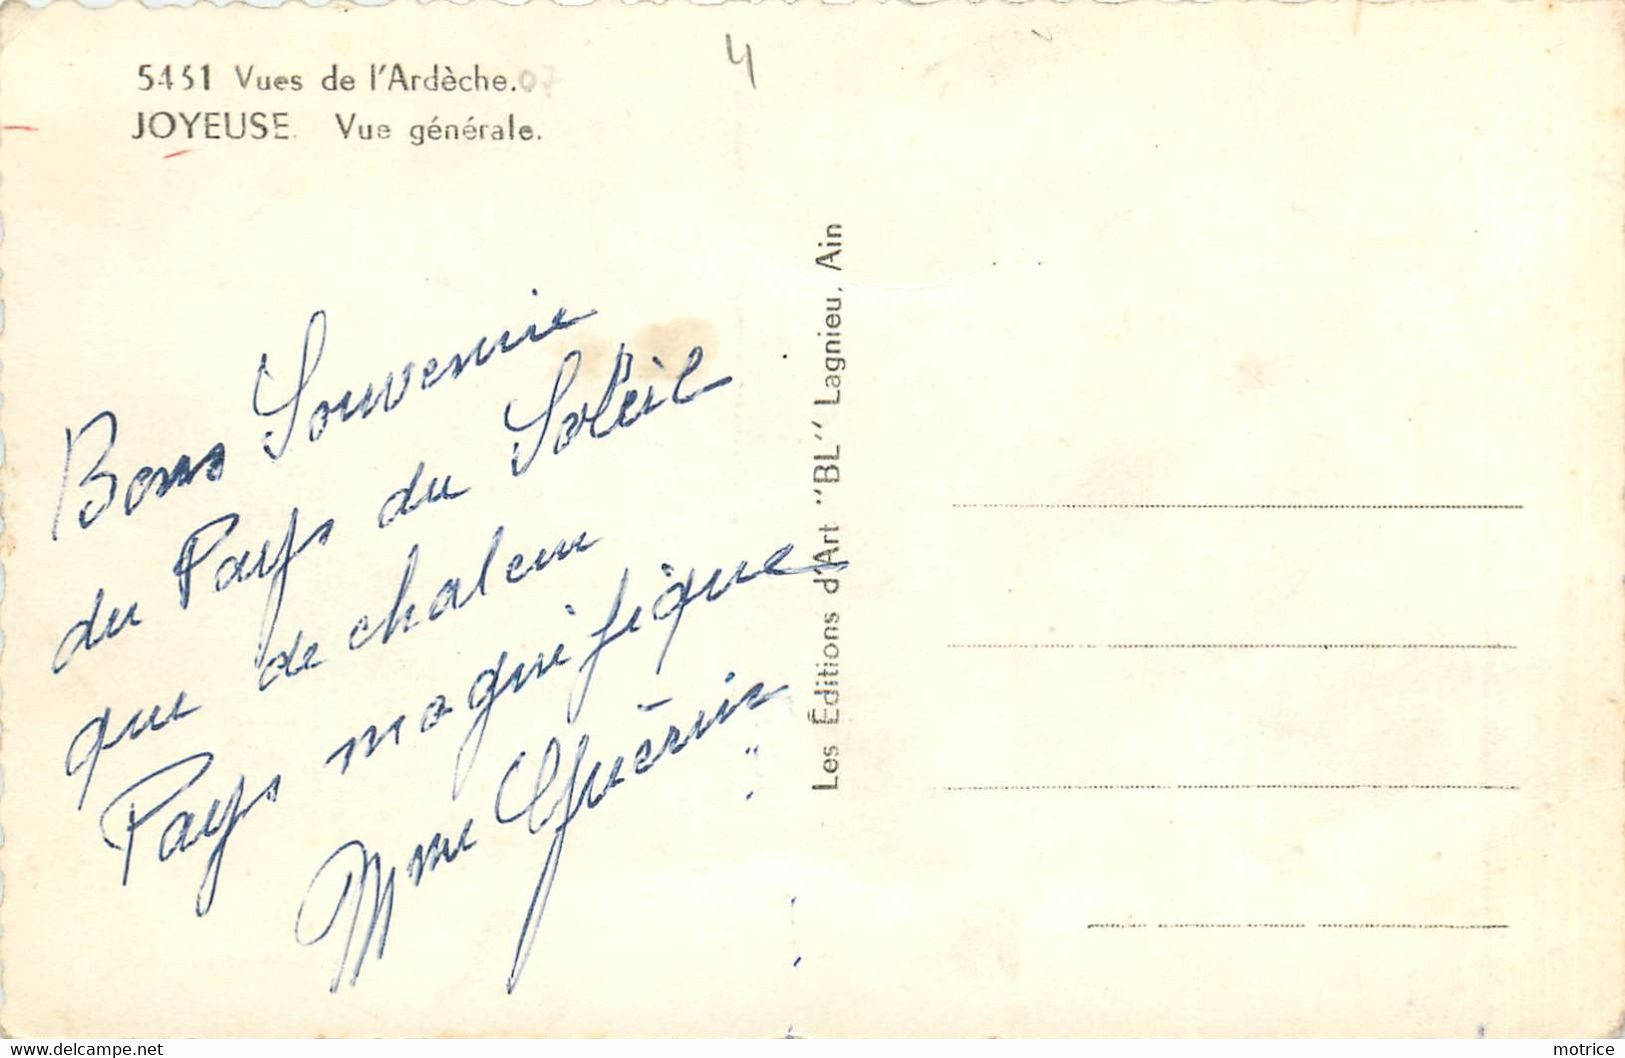 5451 Vues de l'Ardèche. 07
JOYEUSE. Vue générale.
4
Bons Souvenir
du Pays du Soleil
que de chaleur
Pays magnifique
Mme Guérin
Les Éditions d'Art "BL" Lagnieu, Ain
delcampe.net
motrice